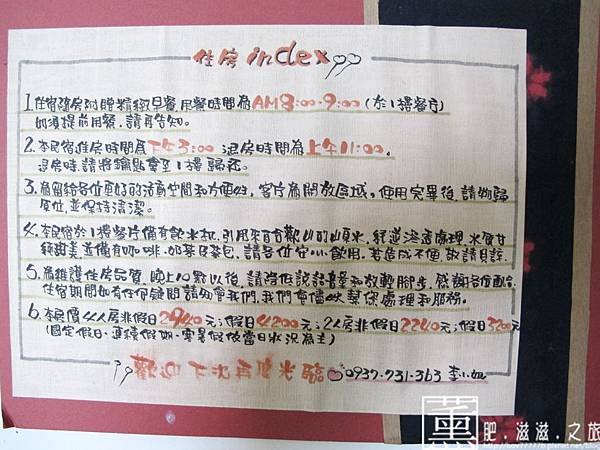 住房index
1.住宿隨房附贈精緻早餐,用餐時間為AM8:00-9:00(於1樓餐廳)
如須提前用餐,請再告知。
2.本民宿進房時間為下午3:00 退房時間為上午11:00。
退房時,請將鑰匙拿至1樓歸還。
3.為留給各位更好的活動空間和方便性,客廳為開放區域,使用完畢後,請物歸
原位,並保持清潔。
4.本民宿於1樓餐廳備有飲水機,引用來自合歡山的山泉水,經逆滲透處理,水質甘
純甜美,並備有咖啡.奶茶及茶包,請各位安心飲用,若造成不便,敬請見諒。
5.為維護住房品質,晚上10點以後,請降低說話音量和放輕腳步,感謝各位配合,
住宿期間如有任何疑問,請知會我們,我們會儘快幫您處理和服務。
6.本民宿價4人房非假日2940元;假日4200元;2人房非假日2240元;假日3200元
(國定假日.連續假期.寒暑假依當日狀況為主)
歡迎下次再度光臨 0937-731-363 李小姐
薰 肥.滋滋.之旅